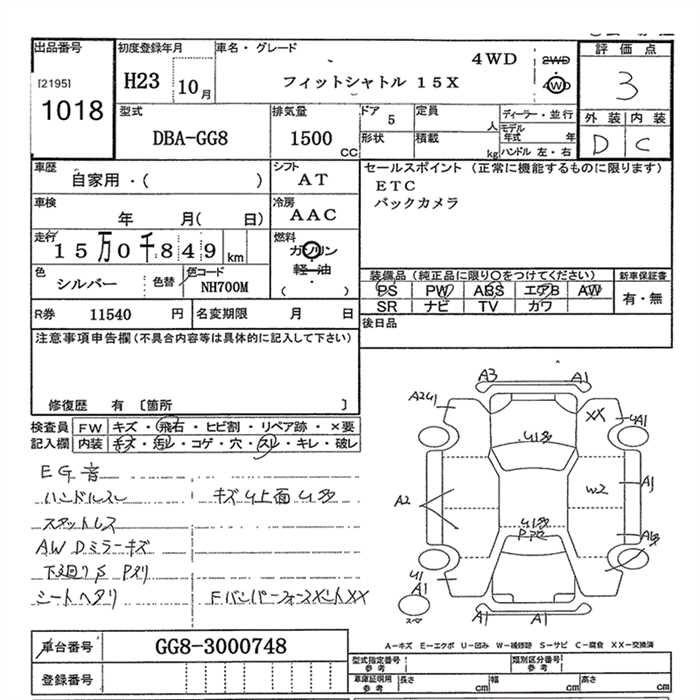 出品番号
[2195]
1018
初度登録年月
H23 10月
車名・グレード
フィットシャトル 15X
4WD
2WD
4WD
評価点
3
外装 内装
D C
型式
DBA-GG8
排気量
1500 CC
ドア 5
定員 人
形状
積載 kg
ディーラー・並行
モデル年式 年
ハンドル 左・右
車歴
自家用・( )
シフト
AT
セールスポイント (正常に機能するものに限ります)
ETC
バックカメラ
車検
年 月( 日)
冷房
AAC
走行
15万0千849 km
燃料
ガソリン
軽・油
( )
色
シルバー
色替
色コード
NH700M
装備品 (純正品に限り○をつけてください)
PS PW ABS エアB AW
SR ナビ TV カワ
新車保証書
有・無
R券 11540 円
名変期限 月 日
後日品
注意事項申告欄(不具合内容等は具体的に記入して下さい)
修復歴 有 〔箇所 〕
検査員記入欄
FW キズ・飛石・ヒビ割・リペア跡・×要
内装 キズ・汚レ・コゲ・穴・スレ・キレ・破レ
EG音
ハンドルスレ
キズU上面U多
スタットレス
AWDミラーキズ
下廻りS Pスリ
シートヘタリ
FバンパーフォースメントXX
A3
A1
A2U1
XX
U1
A1
U1多
A2
W2
A1
U1多
U1
A1
スマ
A1
A1
車台番号
GG8-3000748
登録番号
A-キズ E-エクボ U-凹み W-補修跡 S-サビ C-腐食 XX-交換済
型式指定番号 参考
類別区分番号 参考
車庫証明用 参考
長さ cm
幅 cm
高さ cm